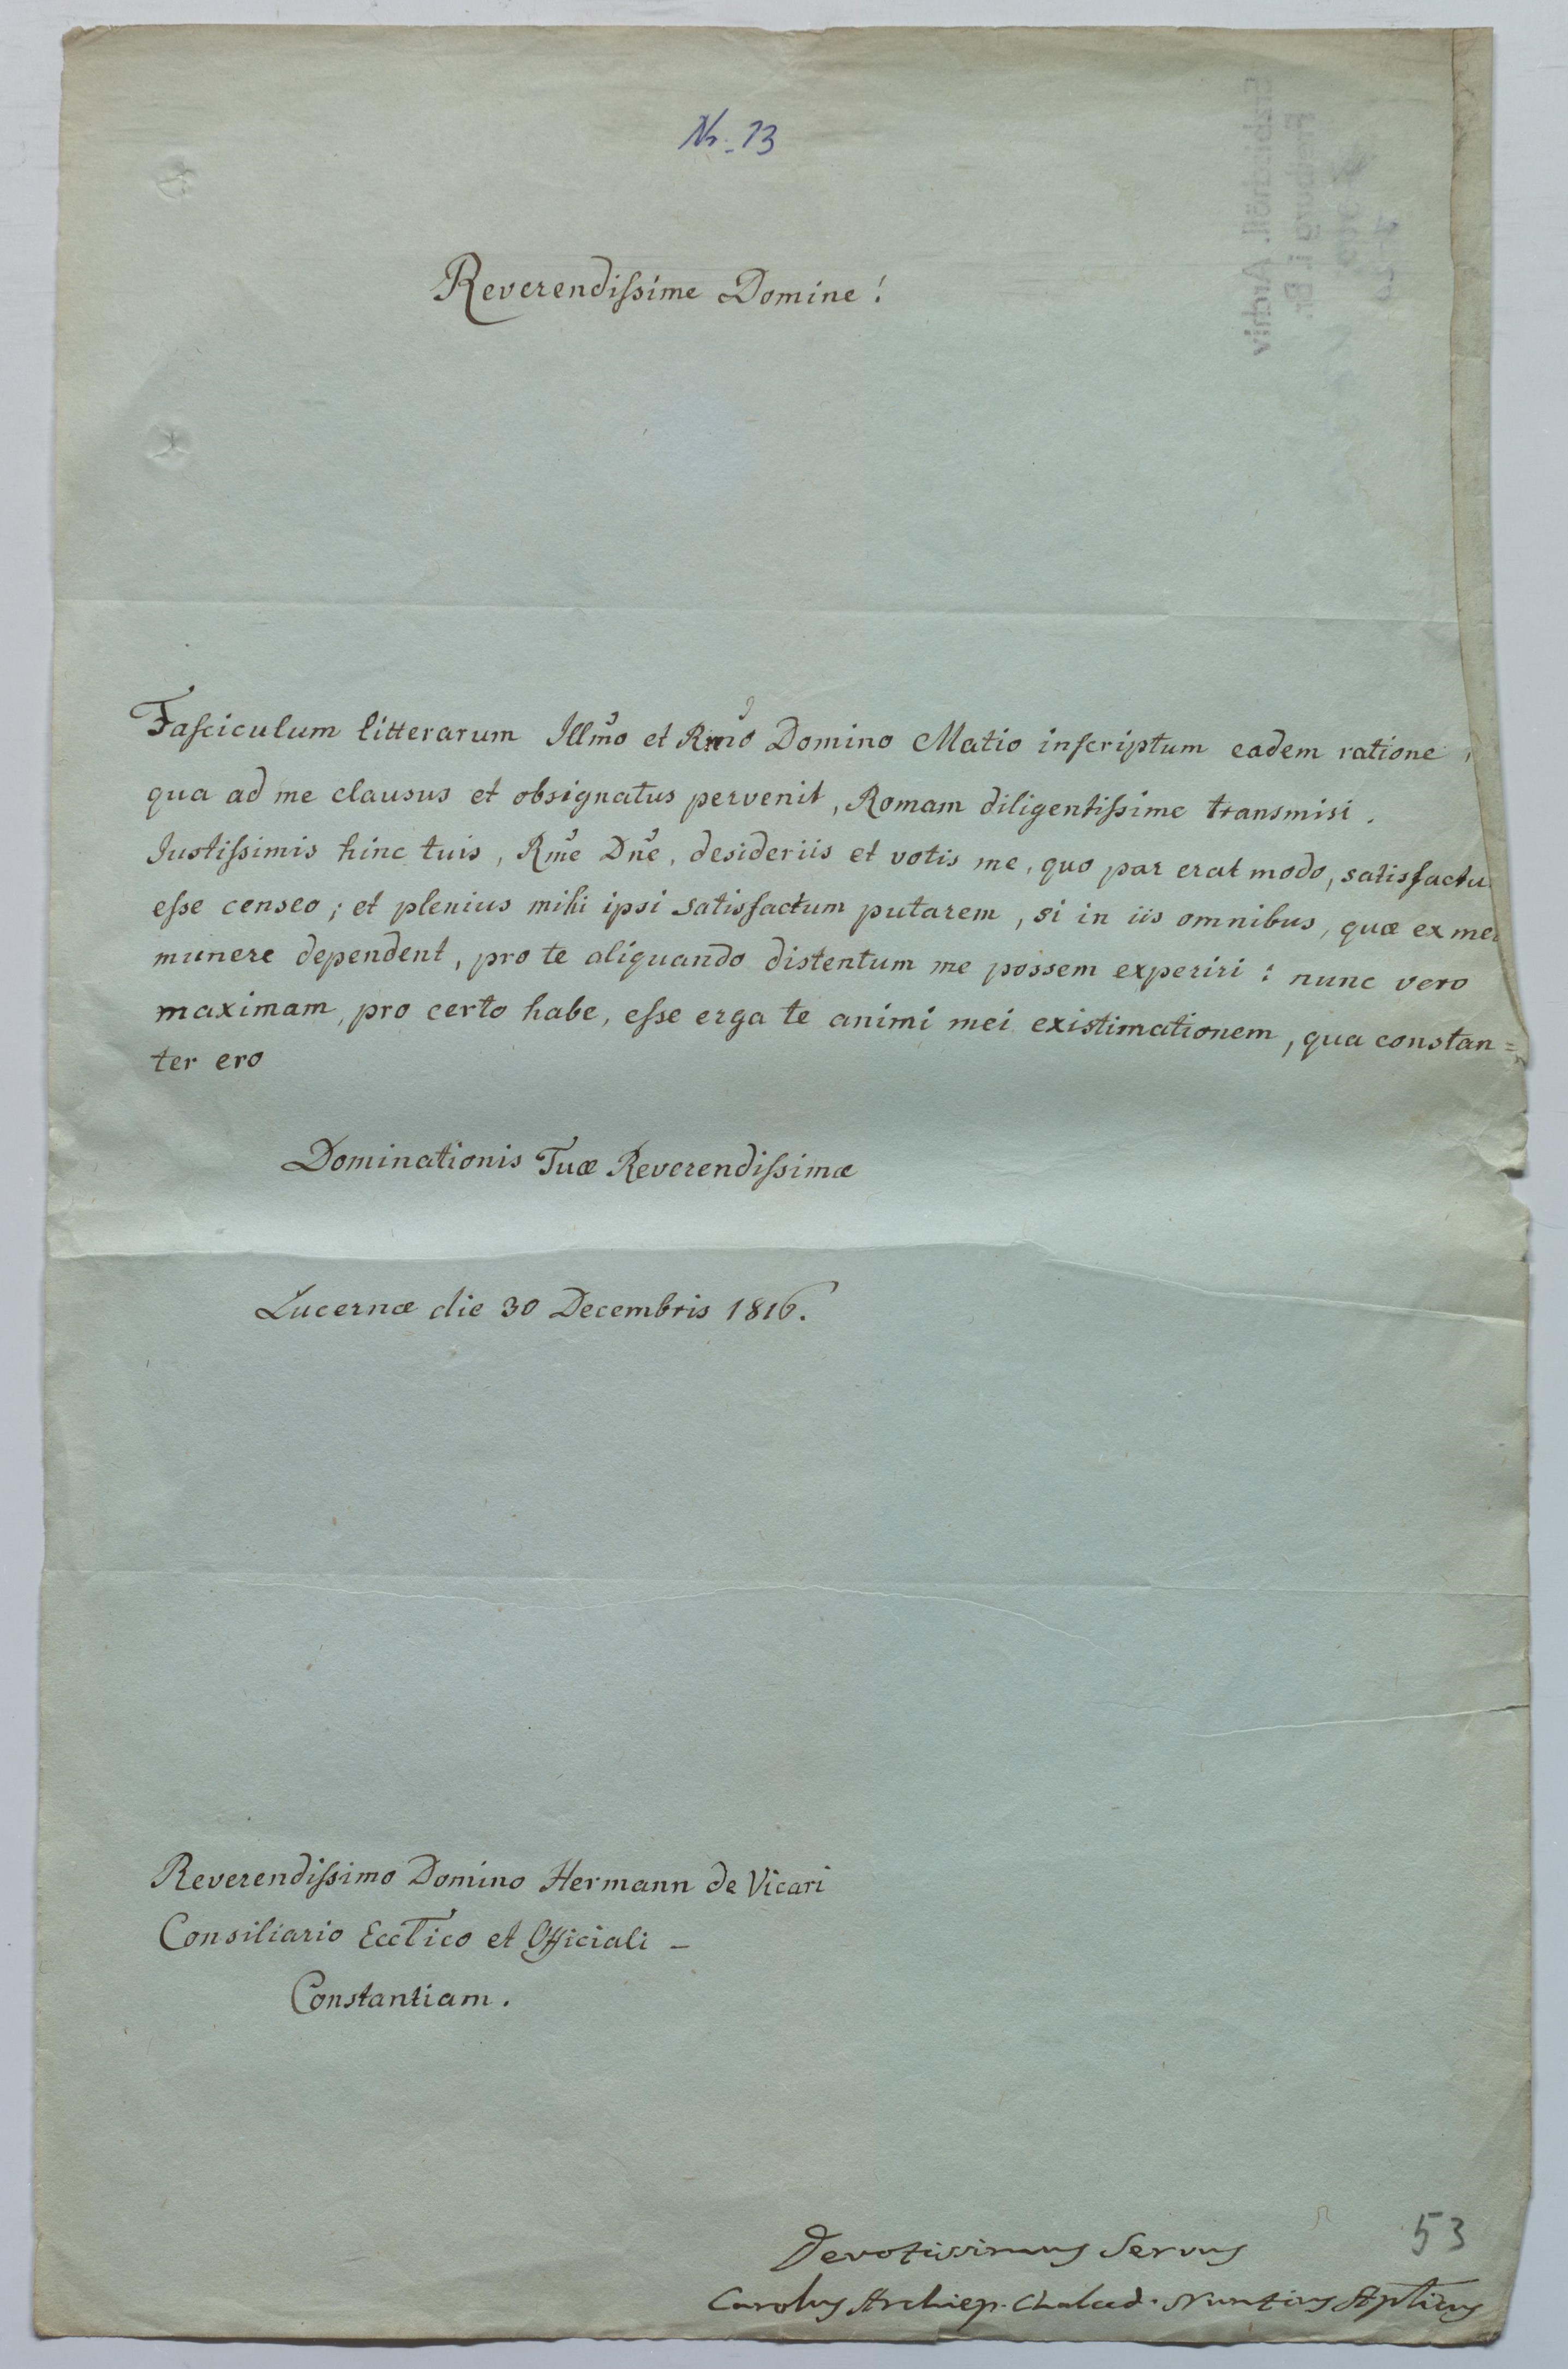 Nr. 13
Reverendissime Domine!
Fasciculum litterarum Illmo et Rmo Domino Matio inscriptum eadem ratione,
qua ad me clausus et obsignatus pervenit, Romam diligentissime transmisi.
Iustissimis hinc tuis, Rme Dne, desideriis et votis me, quo par erat modo, satisfactu
esse censeo; et plenius mihi ipsi satisfactum putarem, si in iis omnibus, quæ ex meo
munere dependent, pro te aliquando distentum me possem experiri: nunc vero
maximam, pro certo habe, esse erga te animi mei existimationem, qua constan=
ter ero
Dominationis Tuæ Reverendissimæ
Lucernæ die 30 Decembris 1816.
Reverendissimo Domino Hermann de Vicari
Consiliario Ecclico et Officiali –
Constantiam.
Devotissimus Servus
Carolus Archiep. Chalced. Nuntius Aplicus
53
Erzbischöfl. Archiv
Freiburg i. Br.